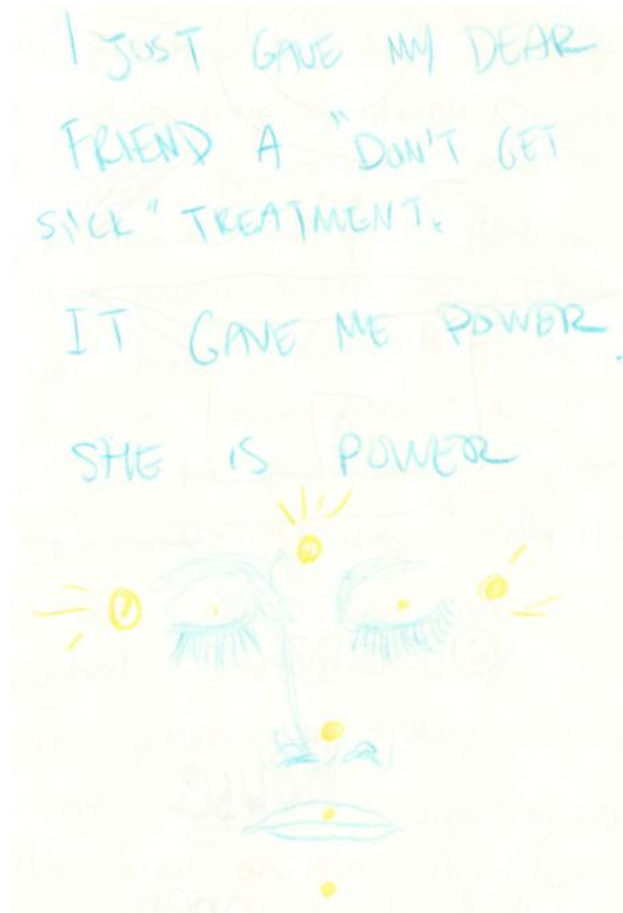 I JUST GAVE MY DEAR
FRIEND A "DON'T GET
SICK" TREATMENT.
IT GAVE ME POWER.
SHE IS POWER